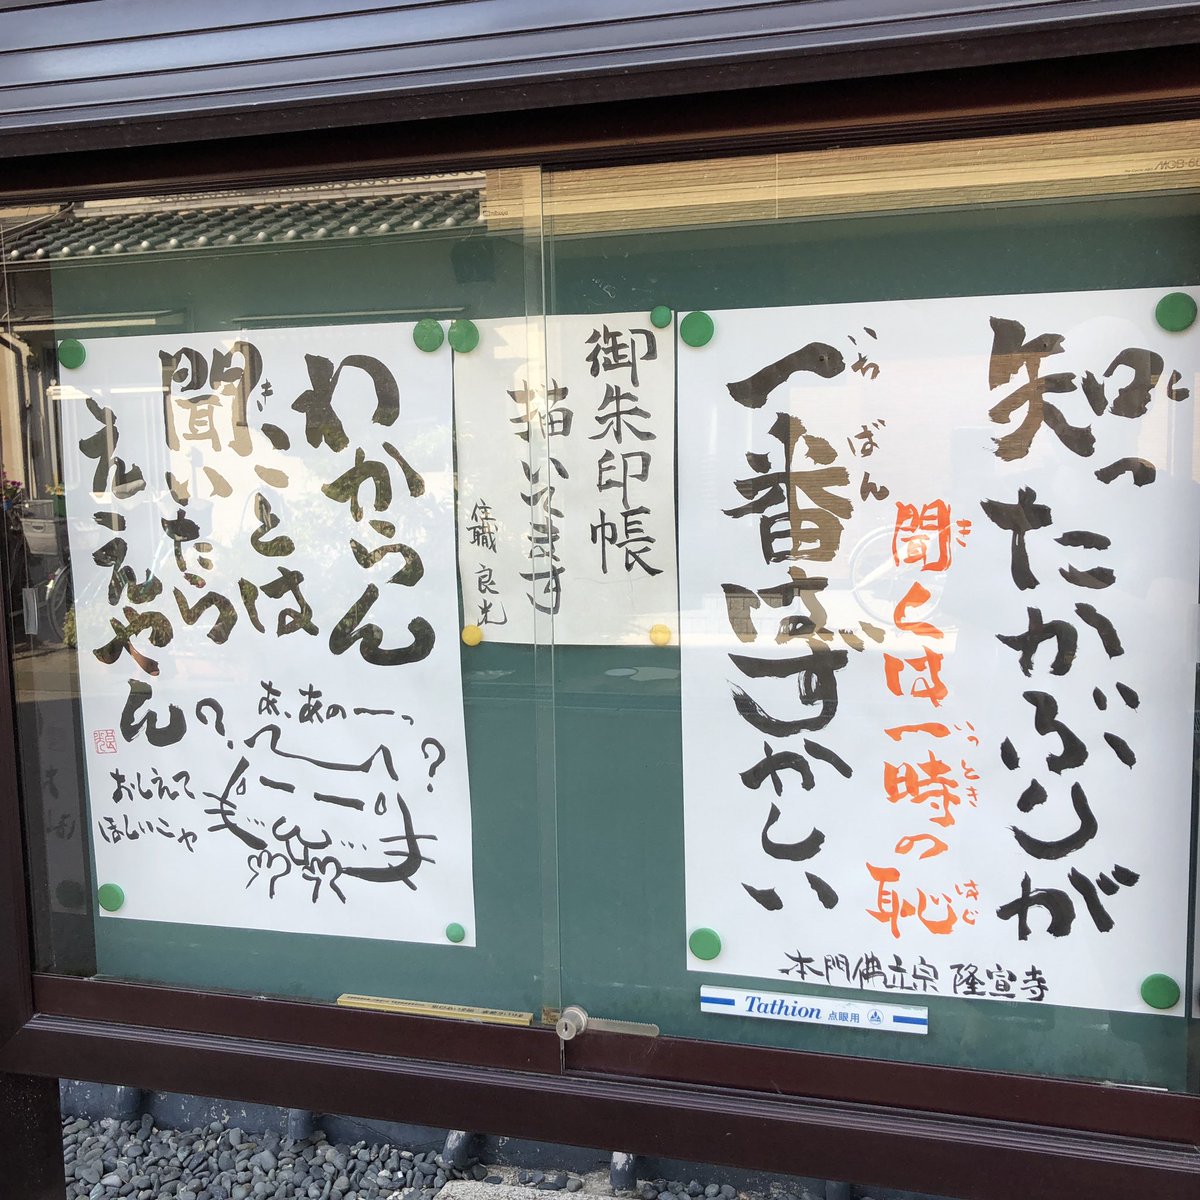 知ったかぶりが
聞くは一時の恥
き
いっとき
はじ
一番はずかしい
いちばん
本門佛立宗 隆宣寺
御朱印帳
描いてます
住職 良光
わからん
ことは
聞いたら
き
ええんやん?
あ、あのーっ?
おしえて
ほしいニャ
Tathion 点眼用